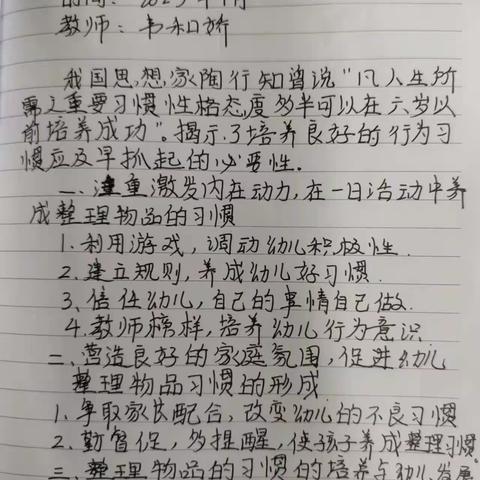 教师：韦和娇
我国思想家陶行知曾说"凡人生所
需之重要习惯性格态度多半可以在六岁以
前培养成功"。揭示了培养良好的行为习
惯应及早抓起的必要性.
一、注重激发内在动力,在一日活动中养
成整理物品的习惯
1.利用游戏,调动幼儿积极性.
2.建立规则,养成幼儿好习惯.
3、信任幼儿,自己的事情自己做.
4.教师榜样,培养幼儿行为意识
二、营造良好的家庭氛围,促进幼儿
整理物品习惯的形成
1.争取家长配合,改变幼儿的不良习惯
2.勤督促,多提醒,使孩子养成整理习惯。
三、整理物品的习惯的培养与幼儿发展